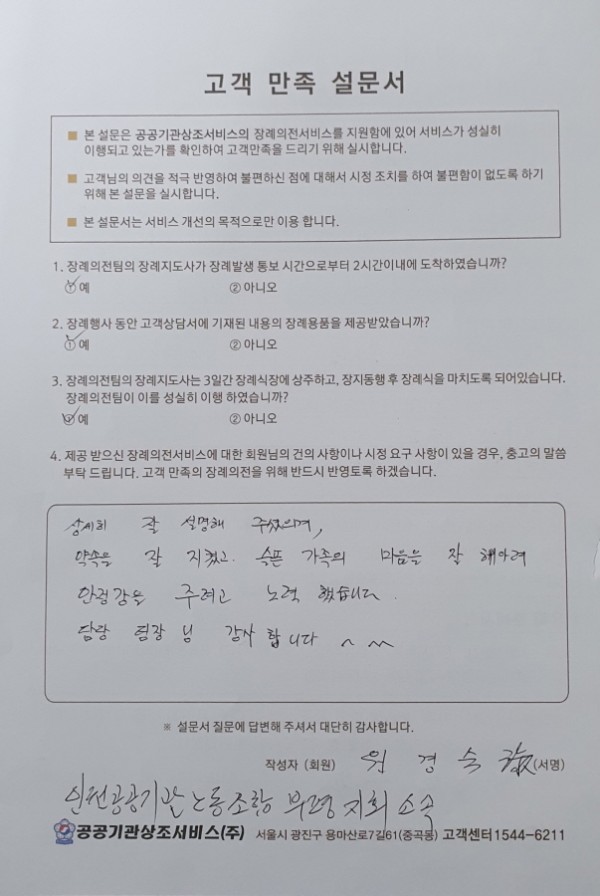 고객 만족 설문서
■ 본 설문은 공공기관상조서비스의 장례의전서비스를 지원함에 있어 서비스가 성실히
이행되고 있는가를 확인하여 고객만족을 드리기 위해 실시합니다.
■ 고객님의 의견을 적극 반영하여 불편하신 점에 대해서 시정 조치를 하여 불편함이 없도록 하기
위해 본 설문을 실시합니다.
■ 본 설문서는 서비스 개선의 목적으로만 이용 합니다.
1. 장례의전팀의 장례지도사가 장례발생 통보 시간으로부터 2시간이내에 도착하였습니까?
① 예 ② 아니오
2. 장례행사 동안 고객상담서에 기재된 내용의 장례용품을 제공받았습니까?
① 예 ② 아니오
3. 장례의전팀의 장례지도사는 3일간 장례식장에 상주하고, 장지동행 후 장례식을 마치도록 되어있습니다.
장례의전팀이 이를 성실히 이행 하였습니까?
① 예 ② 아니오
4. 제공 받으신 장례의전서비스에 대한 회원님의 건의 사항이나 시정 요구 사항이 있을 경우, 충고의 말씀
부탁 드립니다. 고객 만족의 장례의전을 위해 반드시 반영토록 하겠습니다.
상세히 잘 설명해 주셨으며,
약속을 잘 지켰고. 슬픈 가족의 마음을 잘 헤아려
안정감을 주려고 노력 했습니다.
담당 팀장 님 감사 합니다 ~ ~
※ 설문서 질문에 답변해 주셔서 대단히 감사합니다.
작성자 (회원) 원 경 숙 (서명)
인천공공기관노동조합 부평지회 소속
공공기관상조서비스(주) 서울시 광진구 용마산로7길61(중곡동) 고객센터 1544-6211